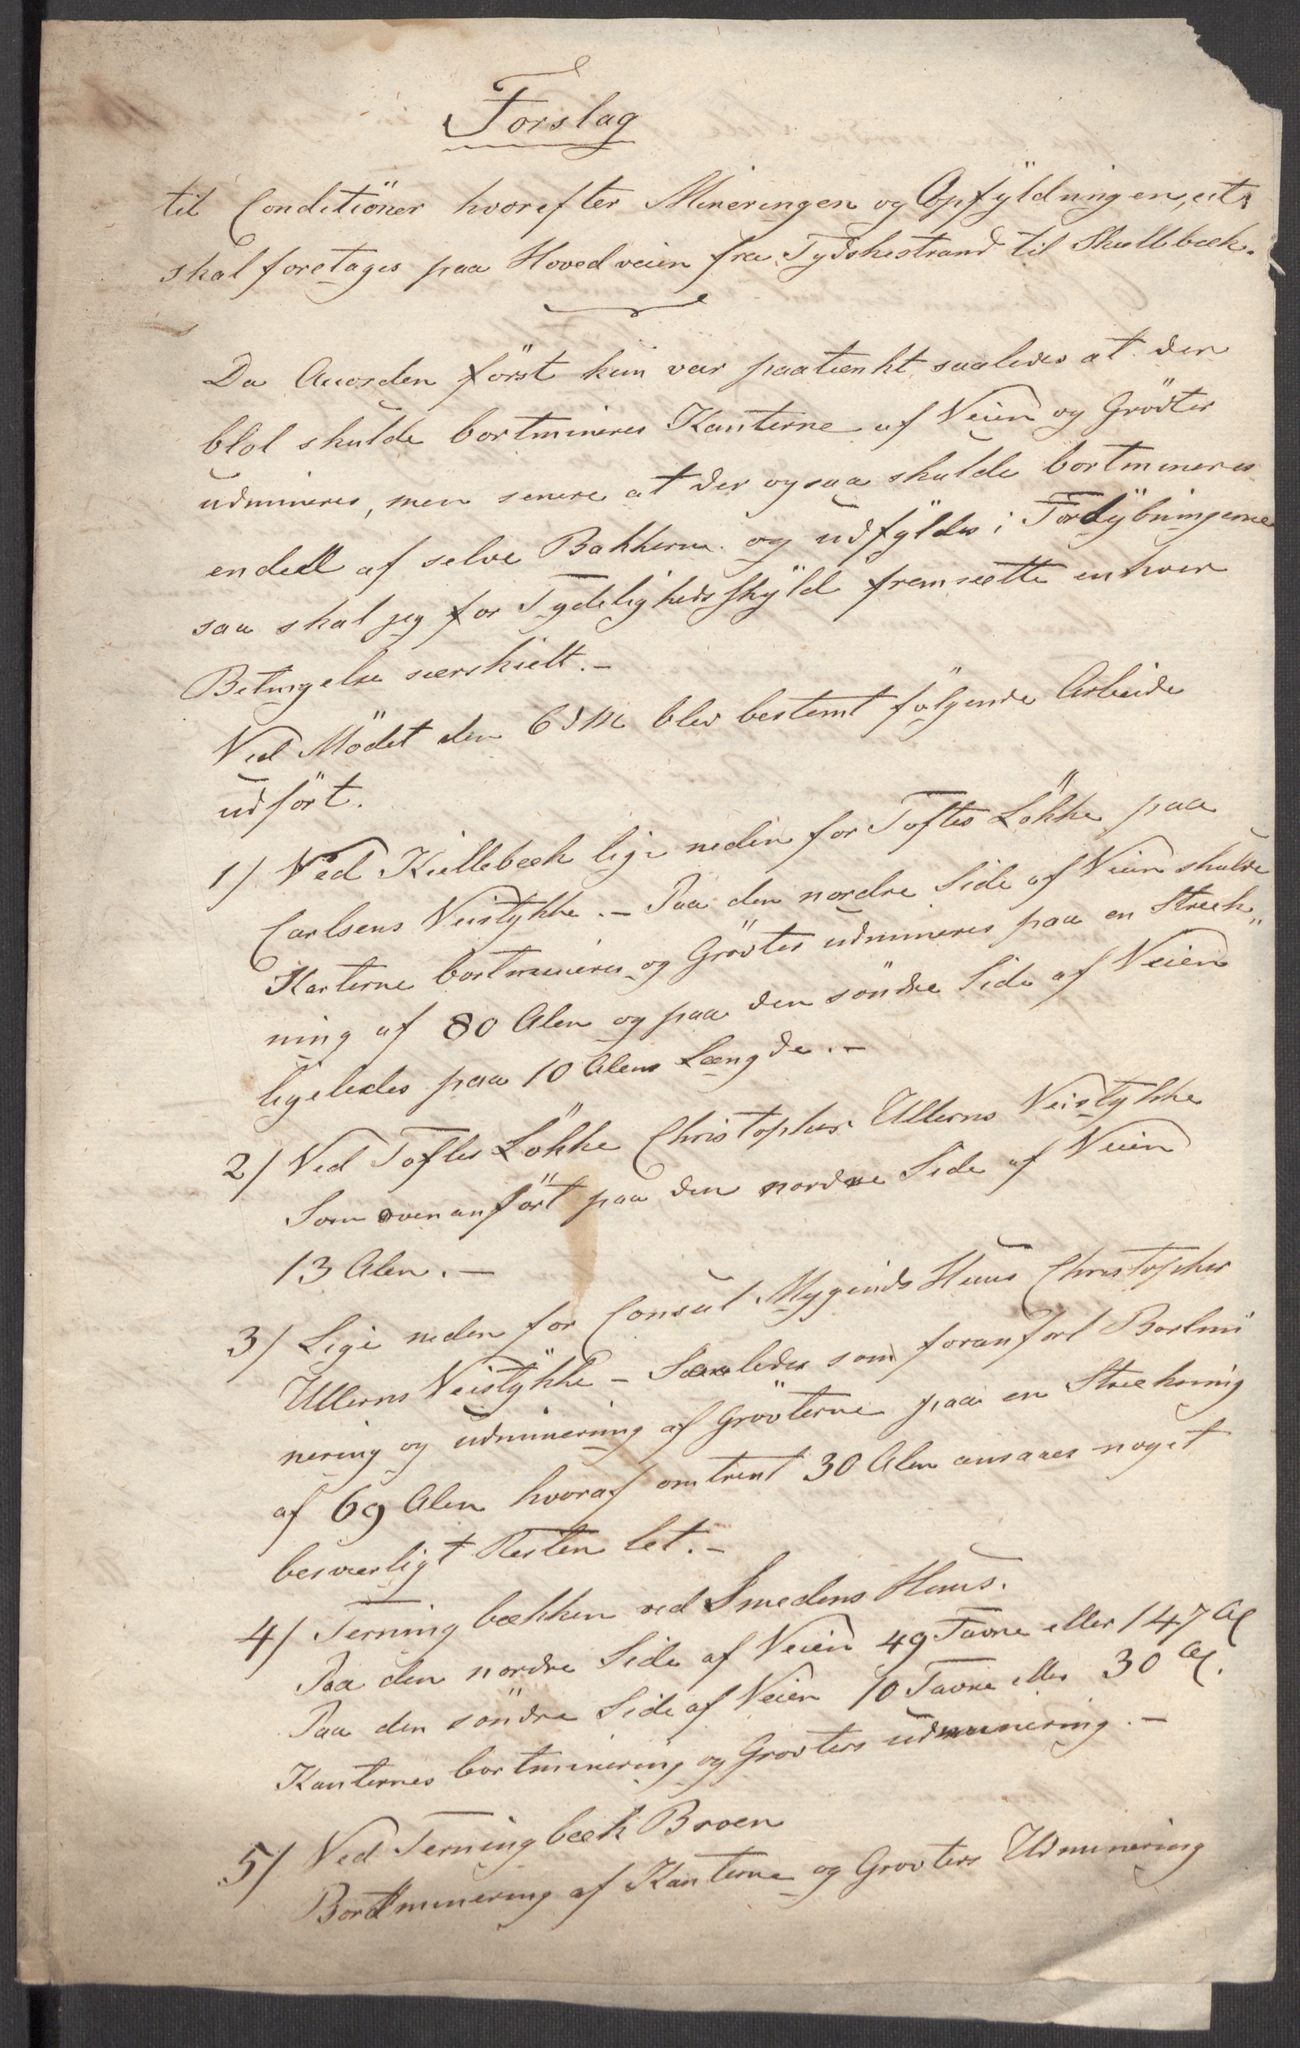 Forslag
til Conditioner hvorefter Mineringen og Opfÿldningen, etc
skal foretages paa Hovedveien fra Tydskestrand til Skillebæk.
Da Accorden först kun var paatænkt saaledes at der
blot skulde bortmineres Kanterne af Veien og Gröfter
udmineres, men senere at der ogsaa skulde bortmineres
endell af selve Bakkerne og udfÿldes i Fordÿbningerne
saa skal jeg for Tydelighedsskÿld fremsætte enhver
Betingelse særskielt.-
Ved Mödet den 6 d M blev bestemt fölgende Arbeide
udfört.
1) Ved Kiellebæk lige neden for Toftes Lökke paa
Carlsens Veistÿkke.- Paa den nordre Side af Veien skulde
Kanterne bortmineres og Grövter udmineres paa en Stræk-
ning af 80 Alen og paa den söndre Side af Veien
ligeledes paa 10 Alens Længde.-
2) Ved Toftes Lökke Christopher Ullerns Veistÿkke
Som ovenanfört paa den nordre Side af Veien
13 Alen.-
3) Lige neden for Consul Myginds Huus Christopher
Ullerns Veistÿkke - Saaledes som foranfört Bortmi
nering og udminering af Grövterne paa en Strækning
af 69 Alen hvoraf omtrent 30 Alen ansaaes noget
besværligt Resten let.-
4) Terningbækken ved Smedens Huus.
Paa den nordre Side af Veien 49 Favne eller 147 Al
Paa den söndre Side af Veien 10 Favne eller 30 Al.
Kanternes bortminering og Grovters udminering.-
5) Ved Terningbæk Broen
Bortminering af Kanterne og Grovters Udminering